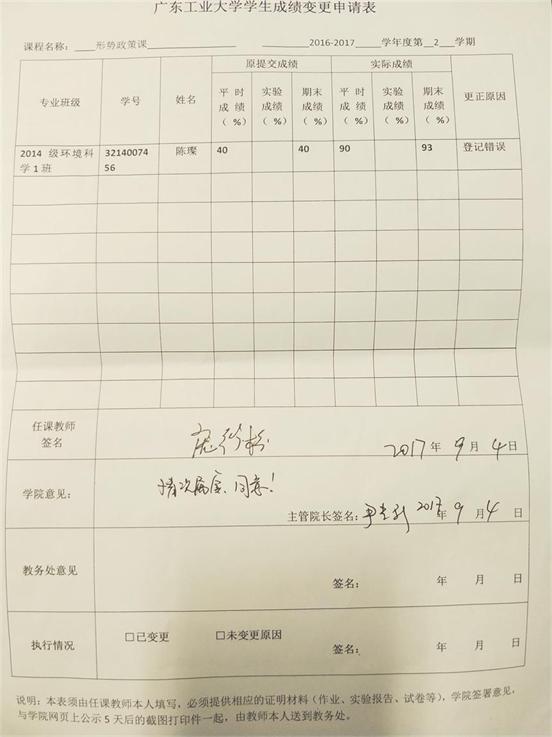 广东工业大学学生成绩变更申请表
课程名称：形势政策课 2016-2017 学年度第 2 学期
专业班级 学号 姓名 原提交成绩 实际成绩 更正原因
平时成绩（ %） 实验成绩（ %） 期末成绩（ %） 平时成绩（ %） 实验成绩（ %） 期末成绩（ %）
2014 级环境科学1班 3214007456 陈璨 40 40 90 93 登记错误
任课教师签名 2017 年 9 月 4 日
学院意见： 情况属实、同意！
主管院长签名： 2017 年 9 月 4 日
教务处意见
签名： 年 月 日
执行情况 □已变更 □未变更原因
签名： 年 月 日
说明：本表须由任课教师本人填写，必须提供相应的证明材料（作业、实验报告、试卷等），学院签署意见，
与学院网页上公示 5 天后的截图打印件一起，由教师本人送到教务处。